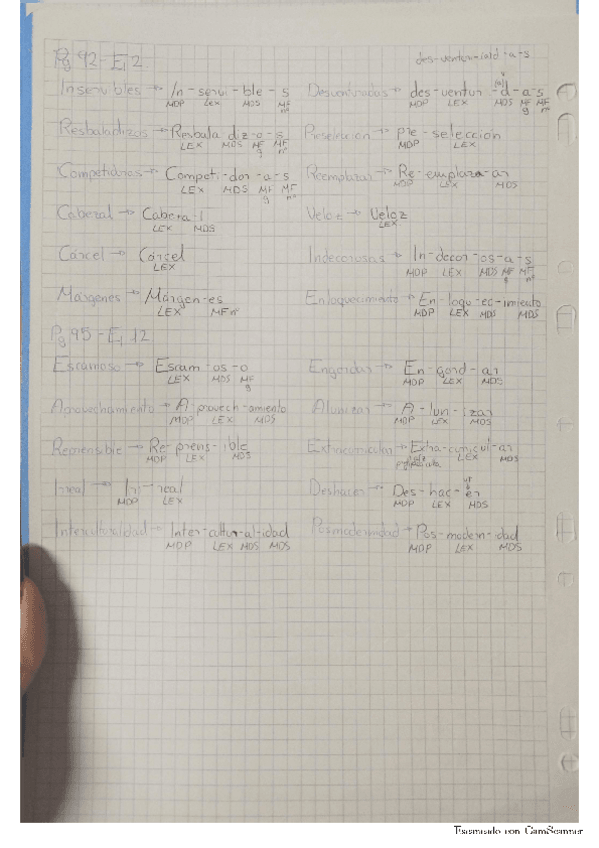 Pg 92 - Ej 2.
des-ventur-(ad)-a-s
Inservibles → In-servi-ble-s
MDP LEX MDS MF nº
Desventuradas → des-ventur-(a)d-a-s
MDP LEX MDS MF g MF nº
Resbaladizos → Resbala-diz-o-s
LEX MDS MF g MF nº
Preselección → pre-seleccion
MDP LEX
Competidoras → Competi-dor-a-s
LEX MDS MF g MF nº
Reemplazar → Re-emplaza-ar
MDP LEX MDS
Caberal → Cabera-l
LEX MDS
Veloz → Veloz
LEX
Cárcel → Cárcel
LEX
Indecorosas → In-decor-os-a-s
MDP LEX MDS MF g MF nº
Márgenes → Márgen-es
LEX MFnº
Enloquecimiento → En-loqu-ec-imiento
MDP LEX MDS MDS
Pg 95 - Ej 12
Escamoso → Escam-os-o
LEX MDS MF g
Engordar → En-gord-ar
MDP LEX MDS
Aprovechamiento → A-provech-amiento
MDP LEX MDS
Alunizar → A-lun-izar
MDP LEX MDS
Reprensible → Re-prens-ible
MDP LEX MDS
Extracurricular → Extra-curricul-ar
LEX MDS
Irreal → Ir-real
MDP LEX
Deshacer → Des-hac-er
MDP LEX MDS
Interculturalidad → Inter-cultur-al-idad
MDP LEX MDS MDS
Posmodernidad → Pos-modern-idad
MDP LEX MDS
Escaneado con CamScanner